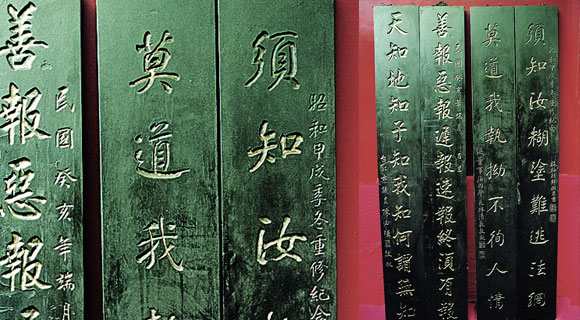 昭和甲戌季冬重修紀念
須知汝
莫道我
民國癸亥年瑞月
善報惡報
昭和甲戌季冬重修紀念
須知汝糊塗難逃法網
莫道我執拗不徇人情
民國癸亥年瑞月
善報惡報遲報速報終須有報
天知地知子知我知何謂無知